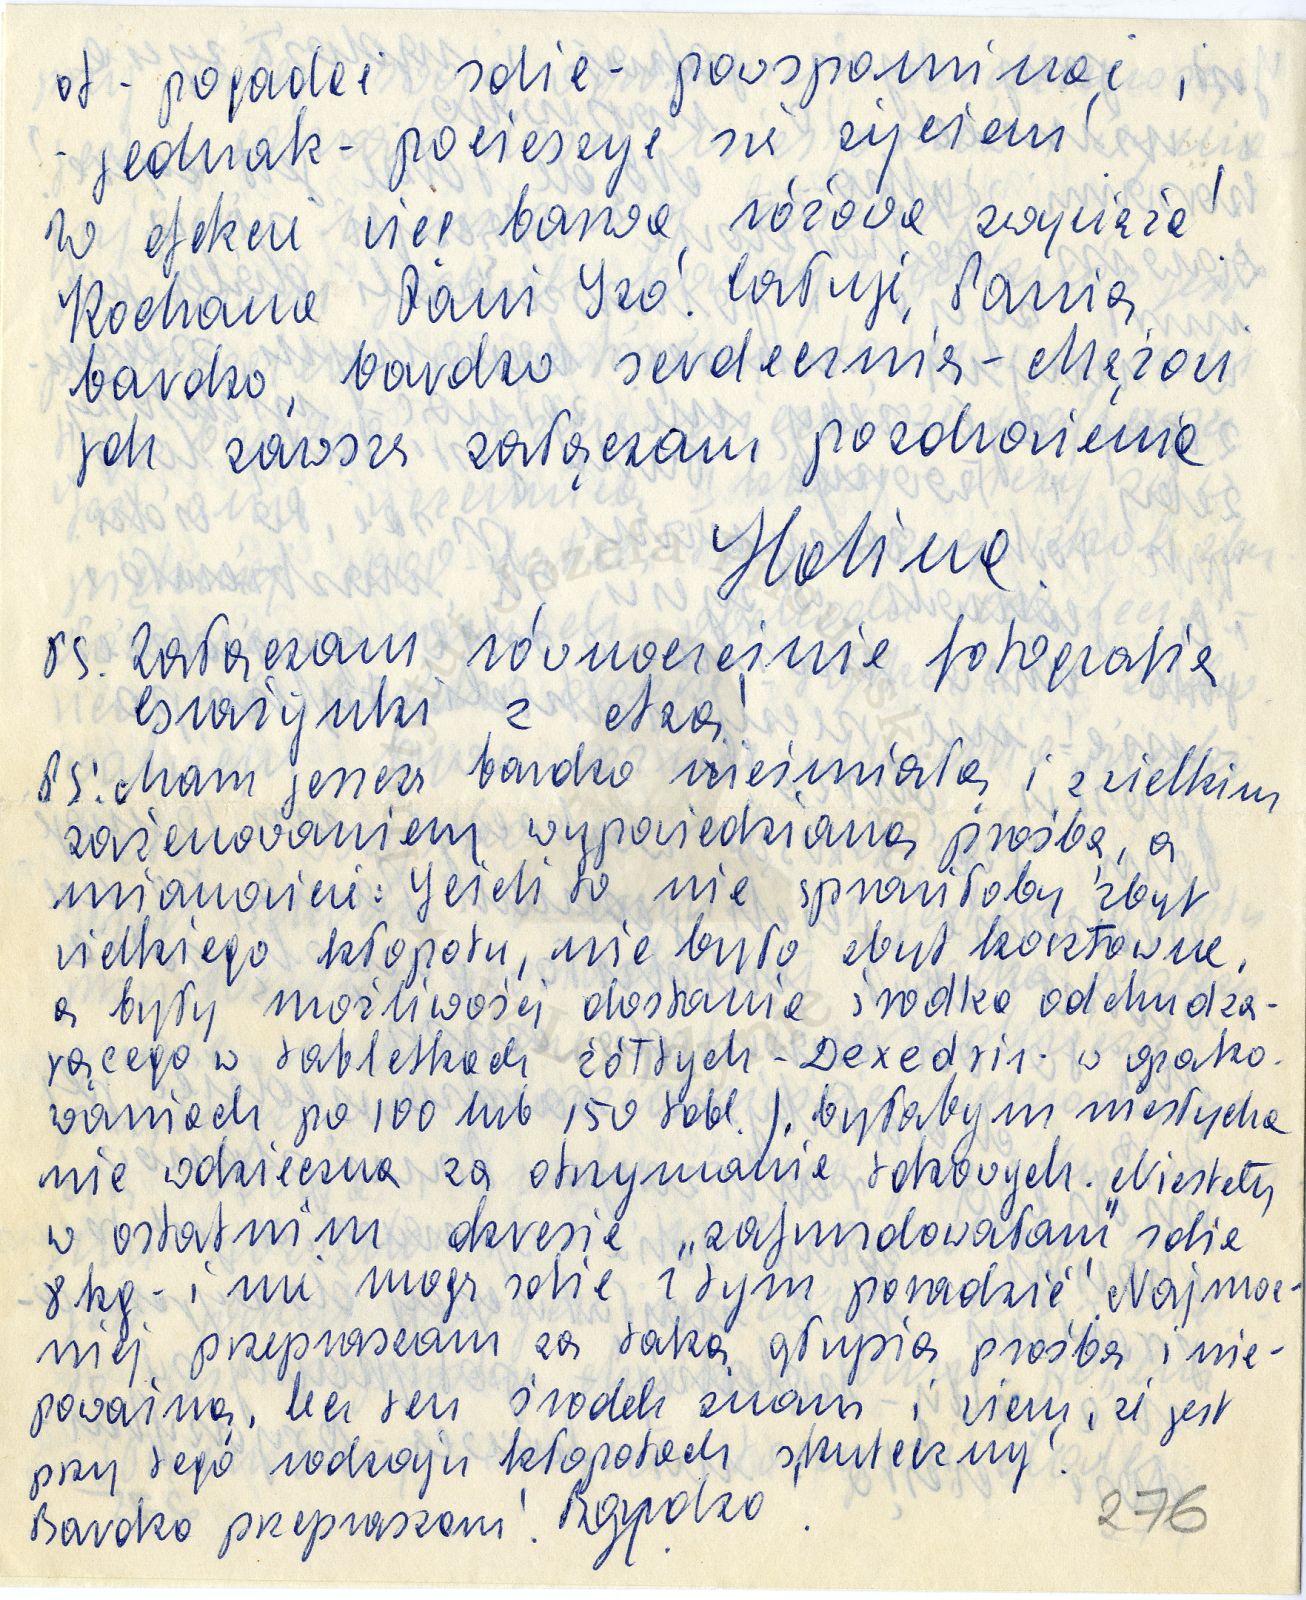 ot - pogadać sobie - powspominać i
- jednak - pocieszyć się życiem!
W efekcie więc barwa różowa zwycięża!
Kochana Pani Izo! Całuję Panią
bardzo, bardzo serdecznie - Mężowi
jak zawsze załączam pozdrowienia
Halina.
PS. Załączam równocześnie fotografię
Grażynki z
PS. Mam jeszcze bardzo nieśmiałą i z wielkim
zażenowaniem wypowiedzianą prośbę, a
mianowicie: Jeżeli to nie sprawiłoby zbyt
wielkiego kłopotu, nie było zbyt kosztowne,
a były możliwości dostania środka odchudza-
jącego w tabletkach żółtych - Dexedrin. w opako-
waniach po 100 lub 150 tabl.), byłabym niesłycha
nie wdzięczna za otrzymanie takowych. Niestety
w ostatnim okresie „zafundowałam" sobie
8 kg - i nie mogę sobie z tym poradzić! Najmoc-
niej przepraszam za taką głupią prośbę i nie-
poważną, lecz ten środek znam i wiem, że jest
przy tego rodzaju kłopotach skuteczny!
Bardzo przepraszam!
276